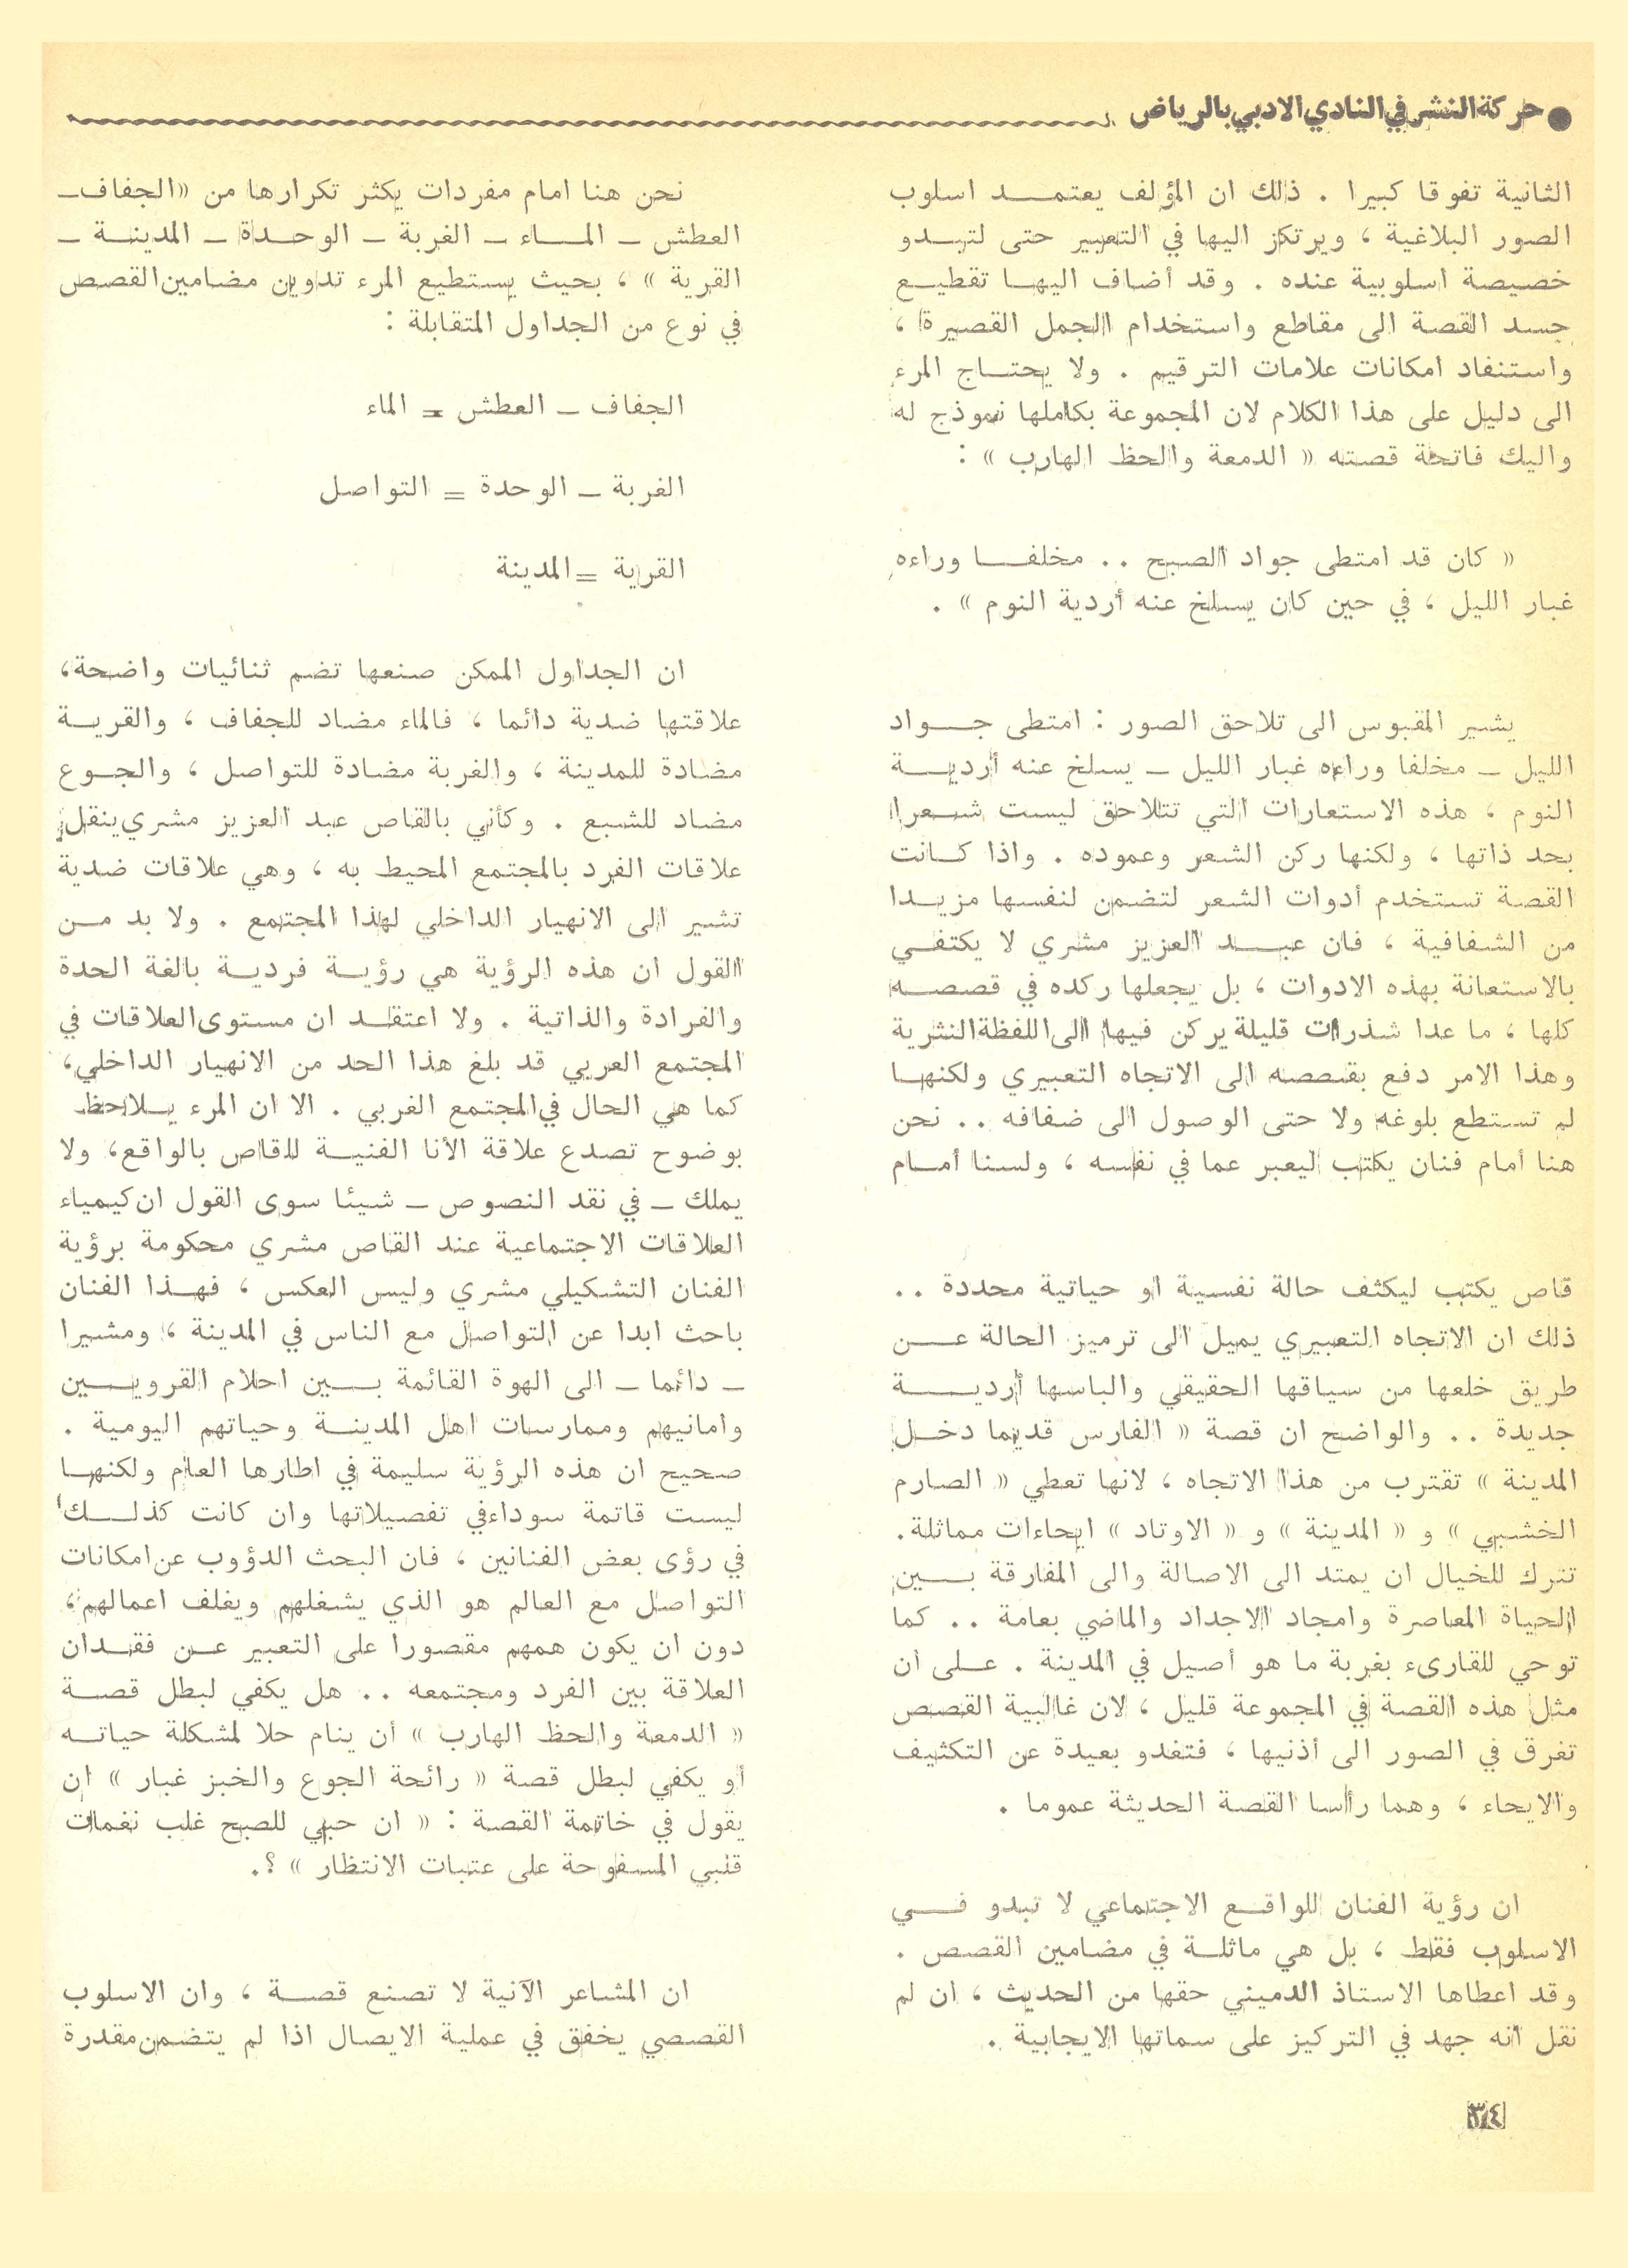 ● حركة النشر في النادي الادبي بالرياض
الثانية تفوقا كبيرا . ذلك ان المؤلف يعتمد اسلوب
الصور البلاغية ، ويرتكز اليها في التعبير حتى لتبدو
خصيصة اسلوبية عنده . وقد أضاف اليها تقطيع
جسد القصة الى مقاطع واستخدام الجمل القصيرة ،
واستنفاد امكانات علامات الترقيم . ولا يحتاج المرء
الى دليل على هذا الكلام لان المجموعة بكاملها نموذج له
واليك فاتحة قصته « الدمعة والحظ الهارب » :
« كان قد امتطى جواد الصبح .. مخلفا وراءه
غبار الليل ، في حين كان يسلخ عنه أردية النوم » .
يشير المقبوس الى تلاحق الصور : امتطى جواد
الليل – مخلفا وراءه غبار الليل – يسلخ عنه أردية
النوم ، هذه الاستعارات التي تتلاحق ليست شعرا
بحد ذاتها ، ولكنها ركن الشعر وعموده . واذا كانت
القصة تستخدم أدوات الشعر لتضمن لنفسها مزيدا
من الشفافية ، فان عبد العزيز مشري لا يكتفي
بالاستعانة بهذه الادوات ، بل يجعلها ركده في قصصه
كلها ، ما عدا شذرات قليلة يركن فيها الى اللفظة النثرية
وهذا الامر دفع بقصصه الى الاتجاه التعبيري ولكنها
لم تستطع بلوغه ولا حتى الوصول الى ضفافه .. نحن
هنا أمام فنان يكتب ليعبر عما في نفسه ، ولسنا أمام
قاص يكتب ليكثف حالة نفسية او حياتية محددة ..
ذلك ان الاتجاه التعبيري يميل الى ترميز الحالة عن
طريق خلعها من سياقها الحقيقي والباسها أردية
جديدة .. والواضح ان قصة « الفارس قديما دخل
المدينة » تقترب من هذا الاتجاه ، لانها تعطي « الصارم
الخشبي » و « المدينة » و « الاوتاد » ايحاءات مماثلة.
تترك للخيال ان يمتد الى الاصالة والى المفارقة بين
الحياة المعاصرة وامجاد الاجداد والماضي بعامة .. كما
توحي للقارىء بغربة ما هو أصيل في المدينة . على ان
مثل هذه القصة في المجموعة قليل ، لان غالبية القصص
تغرق في الصور الى أذنيها ، فتغدو بعيدة عن التكثيف
والايحاء ، وهما رأسا القصة الحديثة عموما .
ان رؤية الفنان للواقع الاجتماعي لا تبدو في
الاسلوب فقط ، بل هي ماثلة في مضامين القصص .
وقد اعطاها الاستاذ الدميني حقها من الحديث ، ان لم
نقل انه جهد في التركيز على سماتها الايجابية .
نحن هنا امام مفردات يكثر تكرارها من « الجفاف –
العطش – الماء – الغربة – الوحدة – المدينة –
القرية » ، بحيث يستطيع المرء تدوين مضامين القصص
في نوع من الجداول المتقابلة :
الجفاف – العطش = الماء
الغربة – الوحدة = التواصل
القرية = المدينة
ان الجداول الممكن صنعها تضم ثنائيات واضحة،
علاقتها ضدية دائما ، فالماء مضاد للجفاف ، والقرية
مضادة للمدينة ، والغربة مضادة للتواصل ، والجوع
مضاد للشبع . وكأني بالقاص عبد العزيز مشري ينقل
علاقات الفرد بالمجتمع المحيط به ، وهي علاقات ضدية
تشير الى الانهيار الداخلي لهذا المجتمع . ولا بد من
القول ان هذه الرؤية هي رؤية فردية بالغة الحدة
والفرادة والذاتية . ولا اعتقد ان مستوى العلاقات في
المجتمع العربي قد بلغ هذا الحد من الانهيار الداخلي،
كما هي الحال في المجتمع الغربي . الا ان المرء يلاحظ
بوضوح تصدع علاقة الأنا الفنية للقاص بالواقع، ولا
يملك – في نقد النصوص – شيئا سوى القول ان كيمياء
العلاقات الاجتماعية عند القاص مشري محكومة برؤية
الفنان التشكيلي مشري وليس العكس ، فهذا الفنان
باحث ابدا عن التواصل مع الناس في المدينة ، ومشيرا
– دائما – الى الهوة القائمة بين احلام القرويين
وامانيهم وممارسات اهل المدينة وحياتهم اليومية .
صحيح ان هذه الرؤية سليمة في اطارها العام ولكنها
ليست قاتمة سوداء في تفصيلاتها وان كانت كذلك
في رؤى بعض الفنانين ، فان البحث الدؤوب عن امكانات
التواصل مع العالم هو الذي يشغلهم ويغلف اعمالهم،
دون ان يكون همهم مقصورا على التعبير عن فقدان
العلاقة بين الفرد ومجتمعه .. هل يكفي لبطل قصة
« الدمعة والحظ الهارب » أن ينام حلا لمشكلة حياته
أو يكفي لبطل قصة « رائحة الجوع والخبز غبار » ان
يقول في خاتمة القصة : « ان حبي للصبح غلب نغمات
قلبي المسفوحة على عتبات الانتظار » ؟.
ان المشاعر الآنية لا تصنع قصة ، وان الاسلوب
القصصي يخفق في عملية الايصال اذا لم يتضمن مقدرة
٣٤